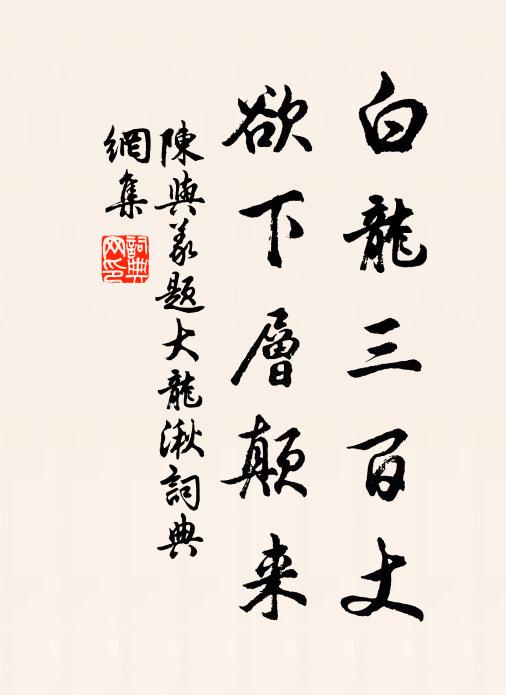 白龍三百丈
欲下層顛来
陳與義題大龍湫詞典
網集
詞典
网印